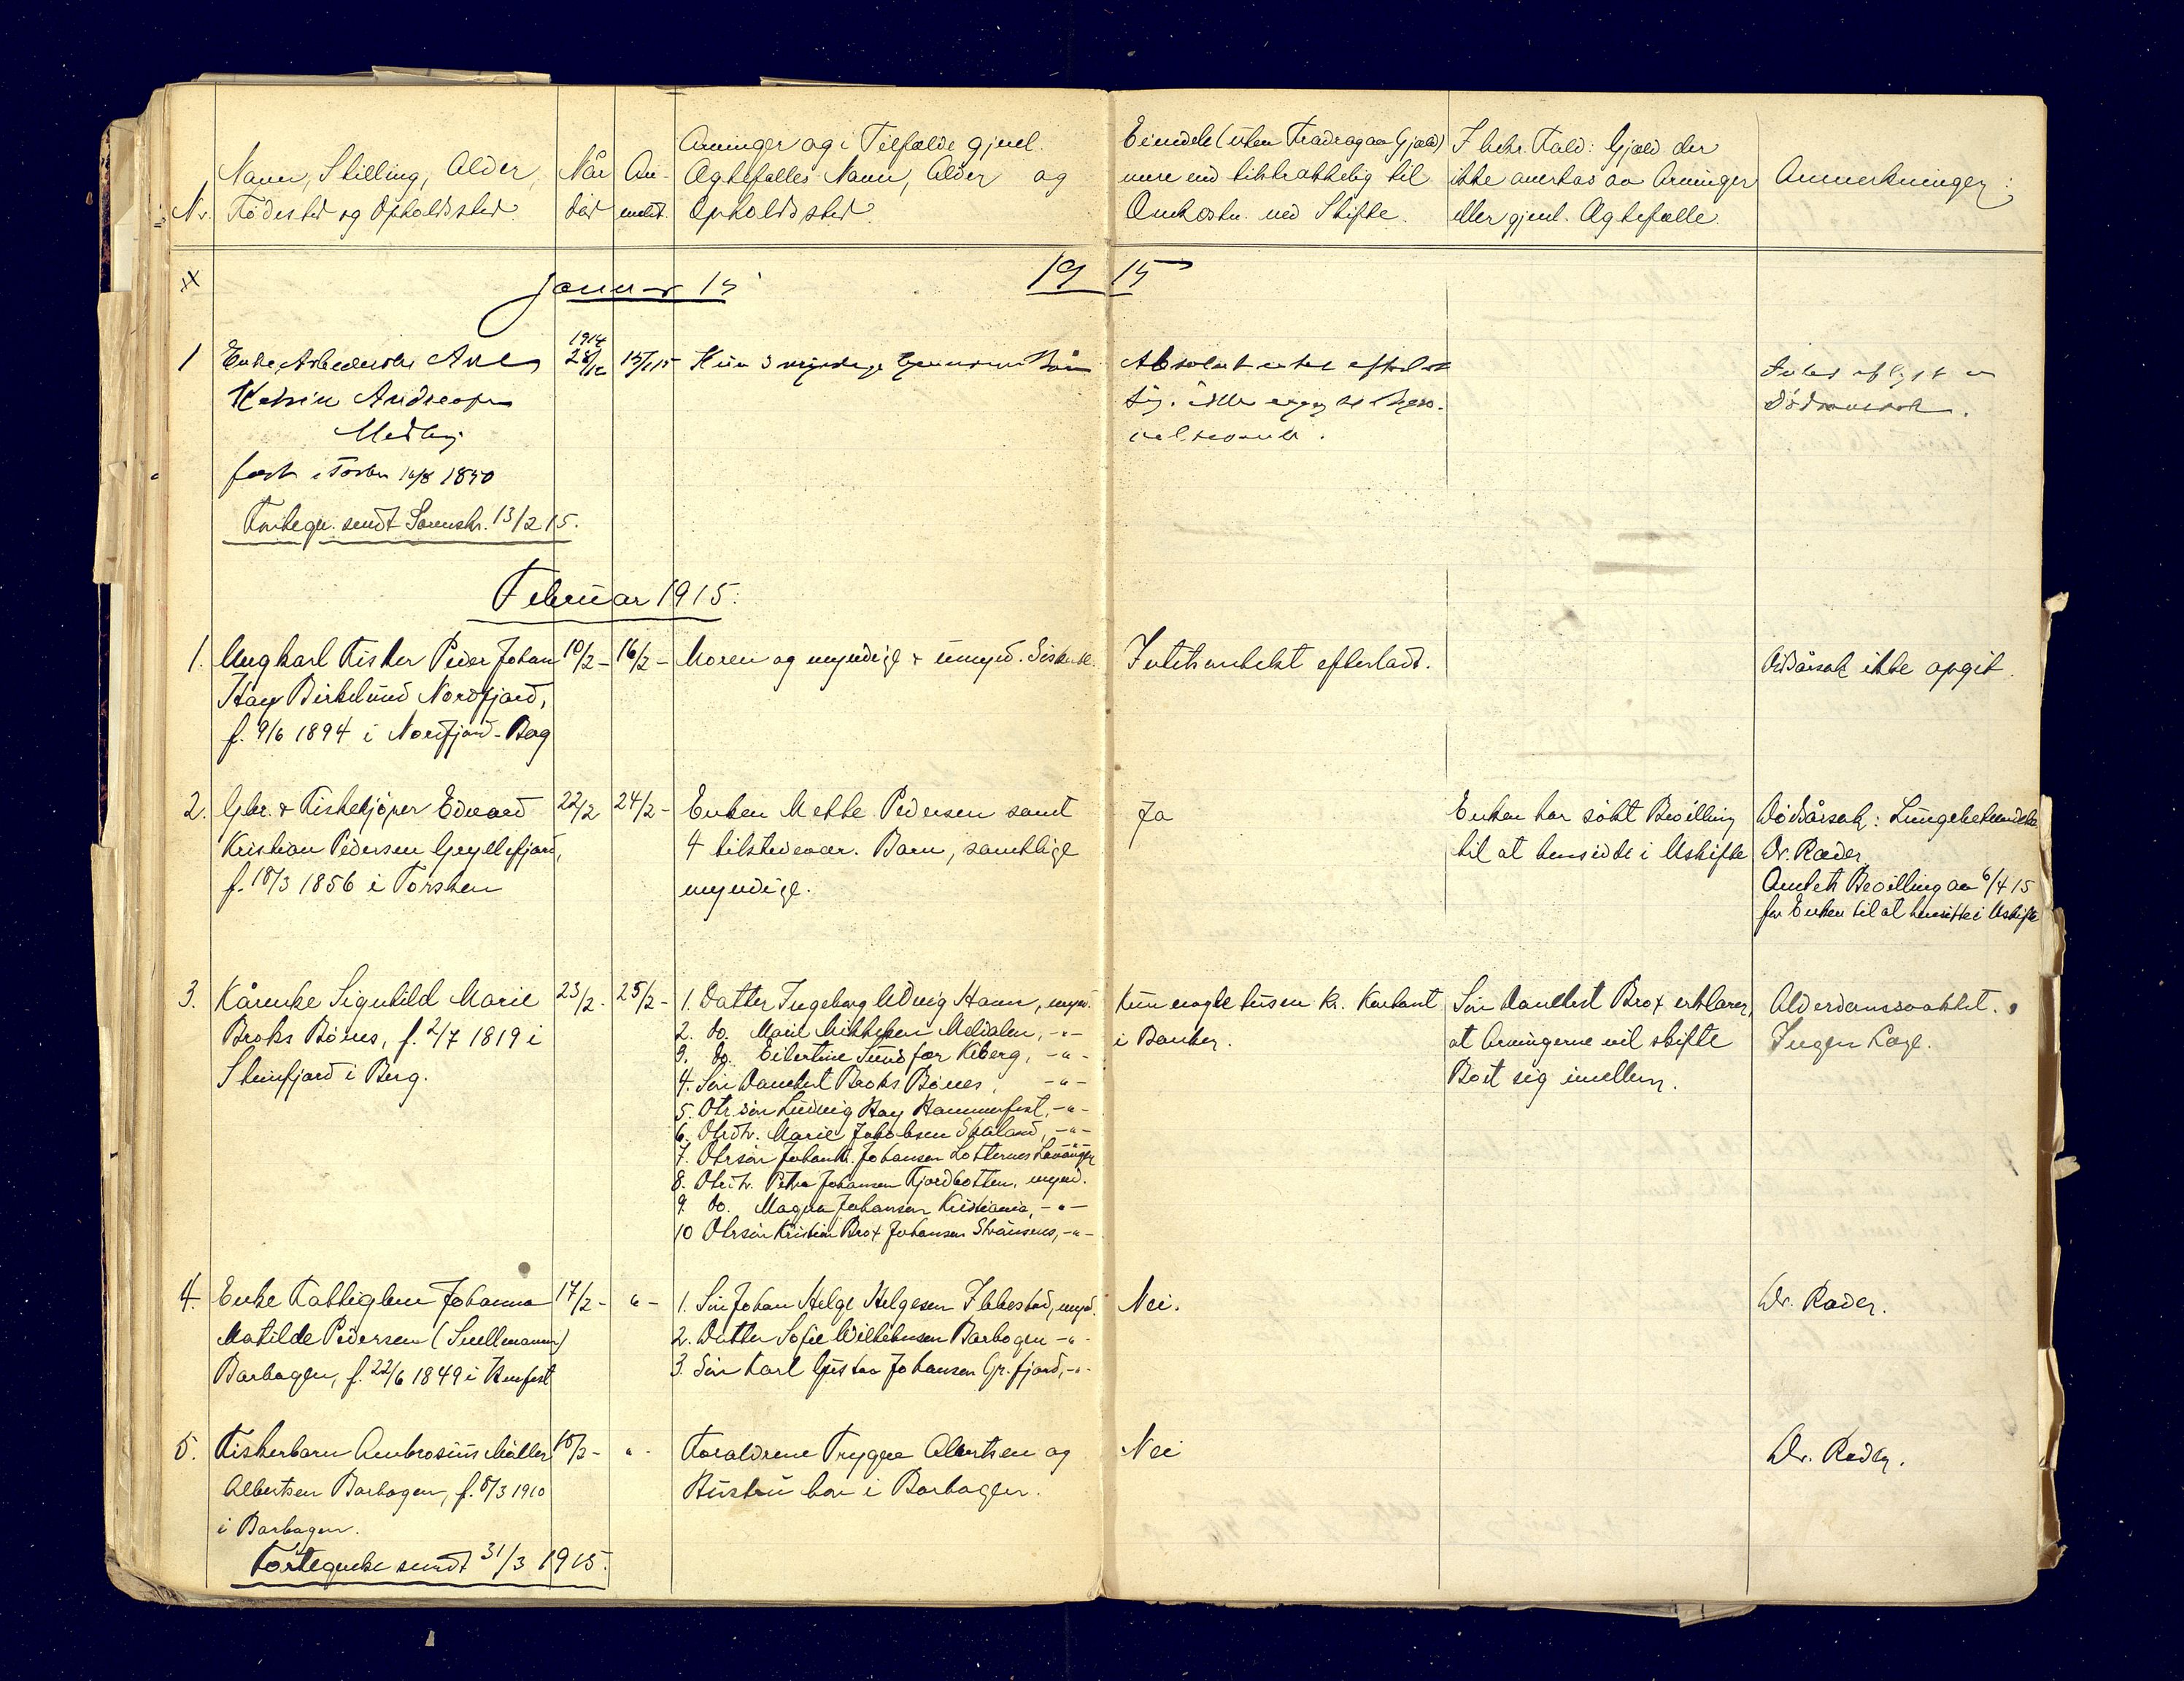 Nr.
Navn, Stilling, Alder,
Fødested og Opholdssted.
Når
død
An-
meldt.
Arvinger og i Tilfælde gjenl.
Ægtefælles Navn, Alder og
Opholdssted.
Eiendele (uten Fradrag av Gjæld)
mere end tilstrækkelig til
Omkostn. ved Skifte.
I bekr. Fald: Gjæld der
ikke overtas av Arvinger
eller gjenl. Ægtefælle.
Anmerkninger:
Januar 15
19 15
1
Enke,
Katrin Andreasen
Medby
født i Torsken 16/8 1850
1914
28/12
15/1 15
Kun 3 myndige Børn
Absolut intet efterlatt
Dødsårsak.
Fortegn. sendt Sorenskr. 13/2 15.
Februar 1915.
1.
Ungkarl Fisker Peder Johan
Hay Birkelund Nordfjord,
f. 9/6 1894 i Nordfjord-Berg
10/2 -
16/2 -
Moren og myndige & umynd. Søskende.
Intet efterladt.
Dødsårsak ikke opgit.
2.
Gbr. & Fiskekjøper Edvard
Kristian Pedersen Gryllefjord,
f. 18/3 1856 i Torsken
22/2
24/2 -
Enken Mette Pedersen samt
4 tilstedevær. Barn, samtlige
myndige.
Ja
Enken har søkt Bevilling
til at hensidde i Uskifte
Dødsårsak: Lungebetændelse
Dr. Ræder.
Amtets Bevilling av 6/4 15
for Enken til at hensitte i Uskifte
3.
Kårenke Signhild Marie
Broks Bønes, f. 2/7 1819 i
Steinfjord i Berg.
23/2 -
25/2 -
1. Datter Ingeborg Ludvig Hann, mynd.
2. Do. Marie Mikkelsen Meldalen, -"-
3. Do. Eilertine Sundsfær Kiberg, -"-
4. Søn Danelert Broks Bønes, -"-
5. Dtr.søn Ludvig Hay Hammerfest, -"-
6. Dtrdtr. Marie Jakobsen Skaland, -"-
7. Dtrsøn Johan K. Johansen Løtternes Lavangen -"-
8. Dtrdtr. Petra Johansen Fjordbotten, mynd.
9. Do. Magna Johansen Kristiania, -"-
10 Dtrsøn Kristian Brox Johansen Straumsnes, -"-
Kun nogle tusen Kr. Kontant
i Banken.
Søn Danelert Brox erklærer,
at Arvingerne vil skifte
Boet sig imellem.
Alderdomssvakhet.
Ingen Læge.
4.
Enke Fattiglem Johanna
Matilde Pedersen (Snellmann)
Barbogen, f. 22/6 1849 i Hmfest
17/2 -
" -
1. Søn Johan Helge Helgesen Ibbestad, mynd.
2. Datter Sofie Wilhelmsen Barbogen -"-
3. Søn Karl Gustav Johansen Gr.fjord, -"-
Nei.
Dr. Ræder.
5.
Fiskerbarn Ambrosius Møller
Albertsen Barbogen, f. 8/3 1910
i Barbogen.
18/2 -
" -
Forældrene Trygve Albertsen og
Hustru bor i Barbogen.
Nei
Dr. Ræder.
Fortegnelse sendt 31/3 1915.